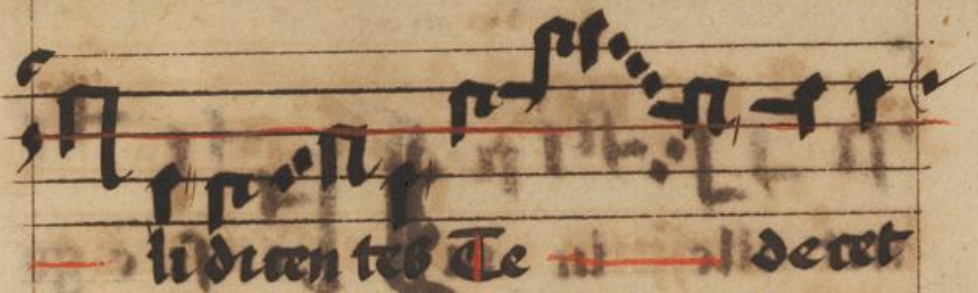 li dicen tes Te decet